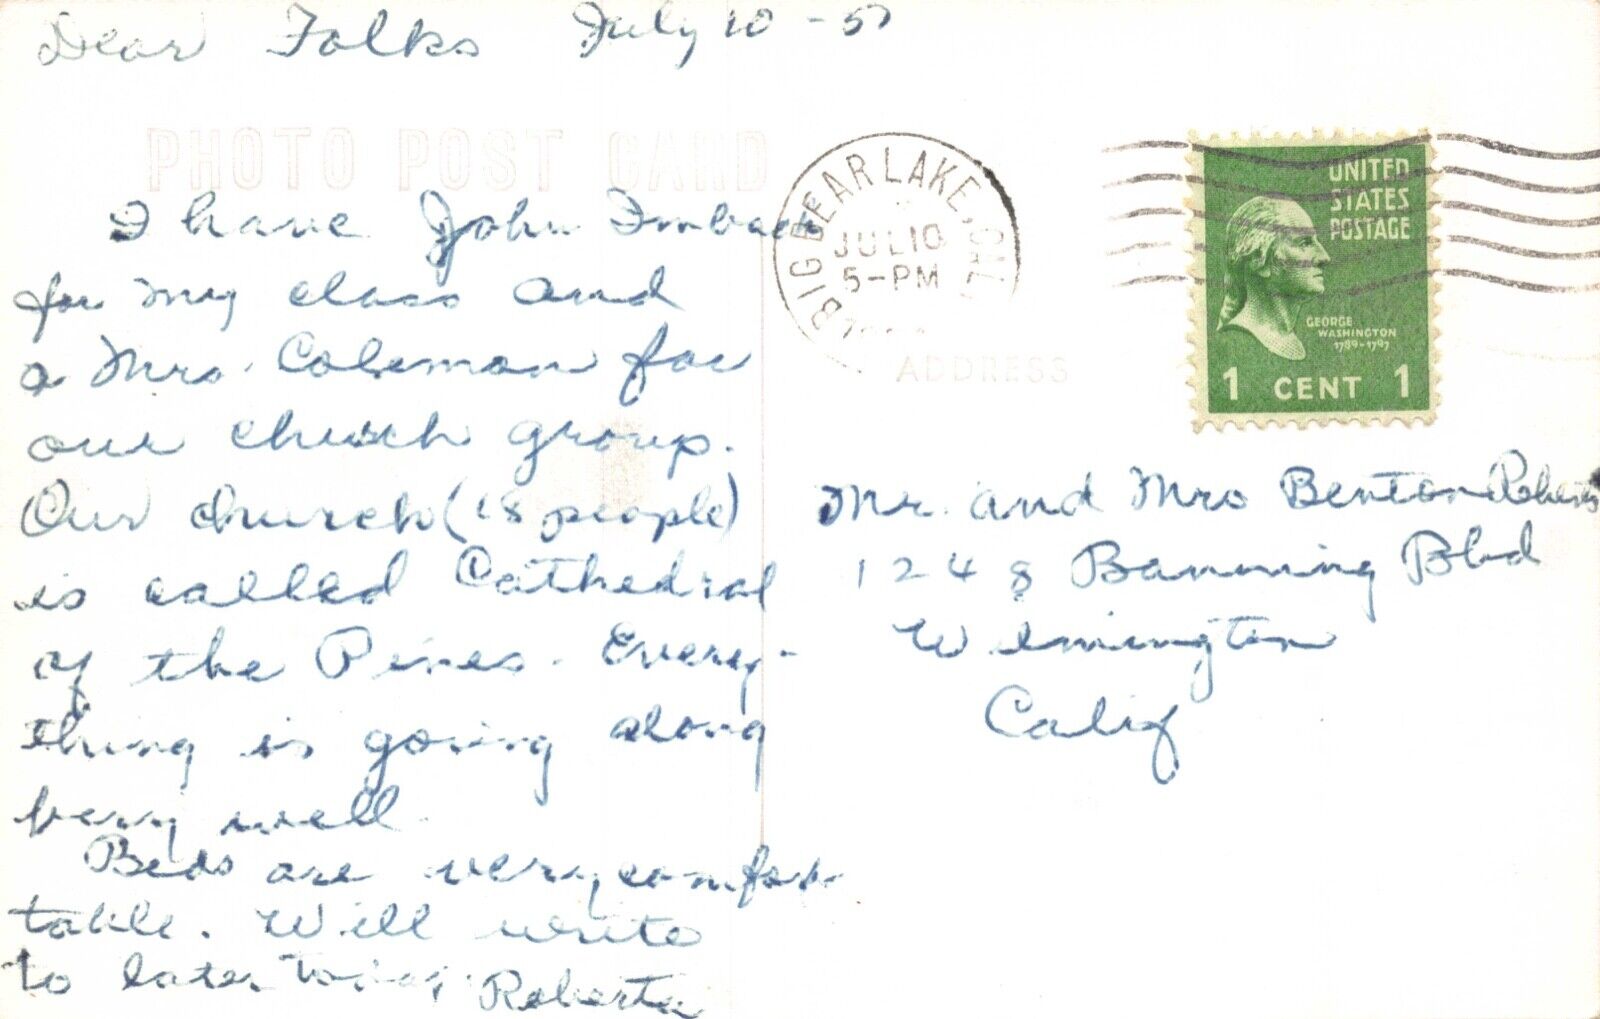 Dear Folks July 10 - 5
PHOTO POST CARD
I have John
for my class and
a Mrs. Coleman for
our church group.
Our church (18 people)
is called Cathedral
of the Pines. Every-
thing is going along
very well.
Beds are very comfor-
table. Will write
to later today. Roberta
BIG BEAR LAKE,
JUL 10
5-PM
ADDRESS
UNITED
STATES
POSTAGE
GEORGE
WASHINGTON
1789-1797
1 CENT 1
Mr. and Mrs Benton Roberts
1248 Banning Blvd
Wilmington
Calif